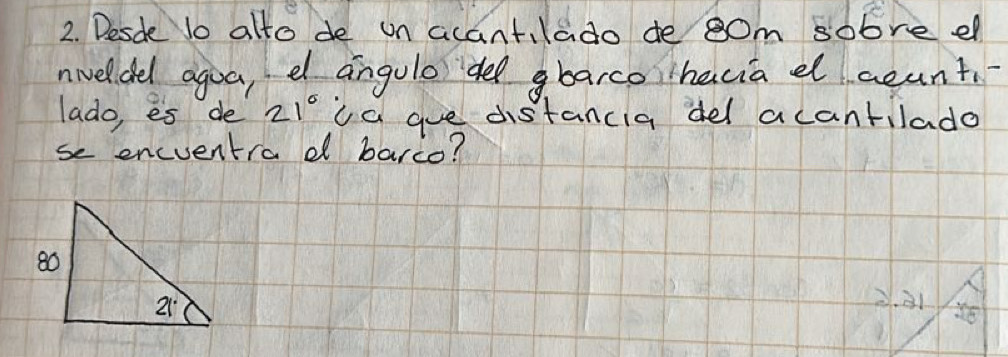 2. Desde lo alto de un acantilado de 80m sobre el
nivel del agua, el ángulo del barco hacia el acanti-
lado, es de 21° ¿a que distancia del acantilado
se encuentra el barco?
80
21°